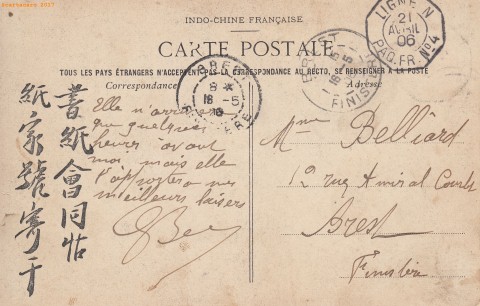 INDO-CHINE FRANÇAISE
CARTE POSTALE
TOUS LES PAYS ÉTRANGERS N'ACCEPTENT PAS LA CORRESPONDANCE AU RECTO, SE RENSEIGNER A LA POSTE
Correspondance
Adresse
LIGNE N
21
AVRIL
06
PAQ. FR. No 4
BREST
18 -5
06
FINISTERE
BREST
8
18 -5
06
FINISTERE
Elle n'arrivera
que quelques
heures avant
moi, mais elle
t'apportera mes
meilleurs baisers
Mme Belliard
rue Amiral
Brest
Finistère
書紙會同
紙家號寄于